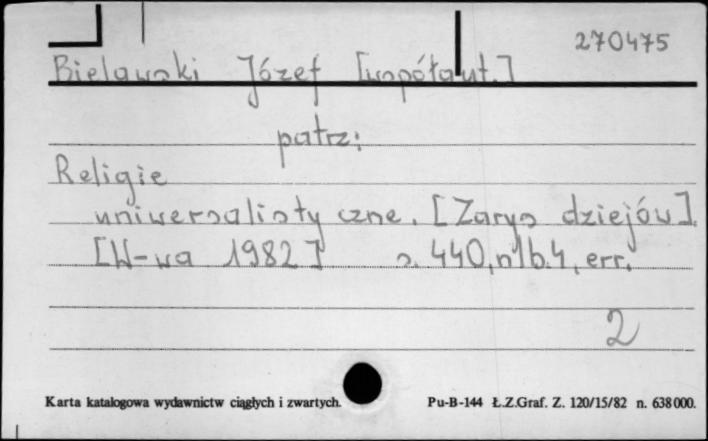 270475
Bielawski Józef [współaut.]
patrz:
Religie
uniwersalistyczne. [Zarys dziejów].
[W-wa 1982] s. 440, nlb. 4, err.
2
Karta katalogowa wydawnictw ciągłych i zwartych. Pu-B-144 Ł.Z.Graf. Z. 120/15/82 n. 638000.